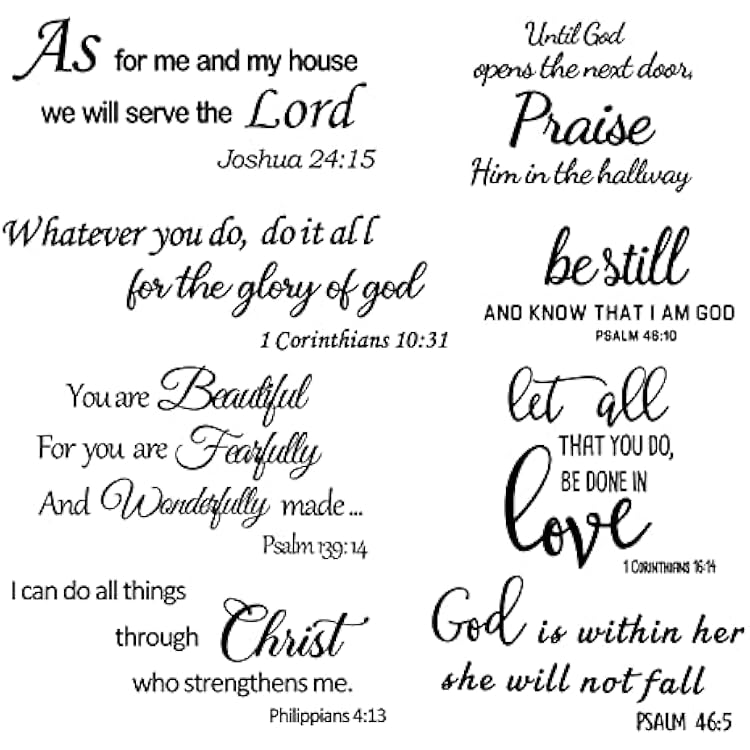 As for me and my house
we will serve the Lord
Joshua 24:15
Until God
opens the next door,
Praise
Him in the hallway
Whatever you do, do it all
for the glory of god
1 Corinthians 10:31
be still
AND KNOW THAT I AM GOD
PSALM 46:10
You are Beautiful
For you are Fearfully
And Wonderfully made...
Psalm 139:14
let all
THAT YOU DO,
BE DONE IN
love
1 CORINTHIANS 16:14
I can do all things
through Christ
who strengthens me.
Philippians 4:13
God is within her
she will not fall
PSALM 46:5